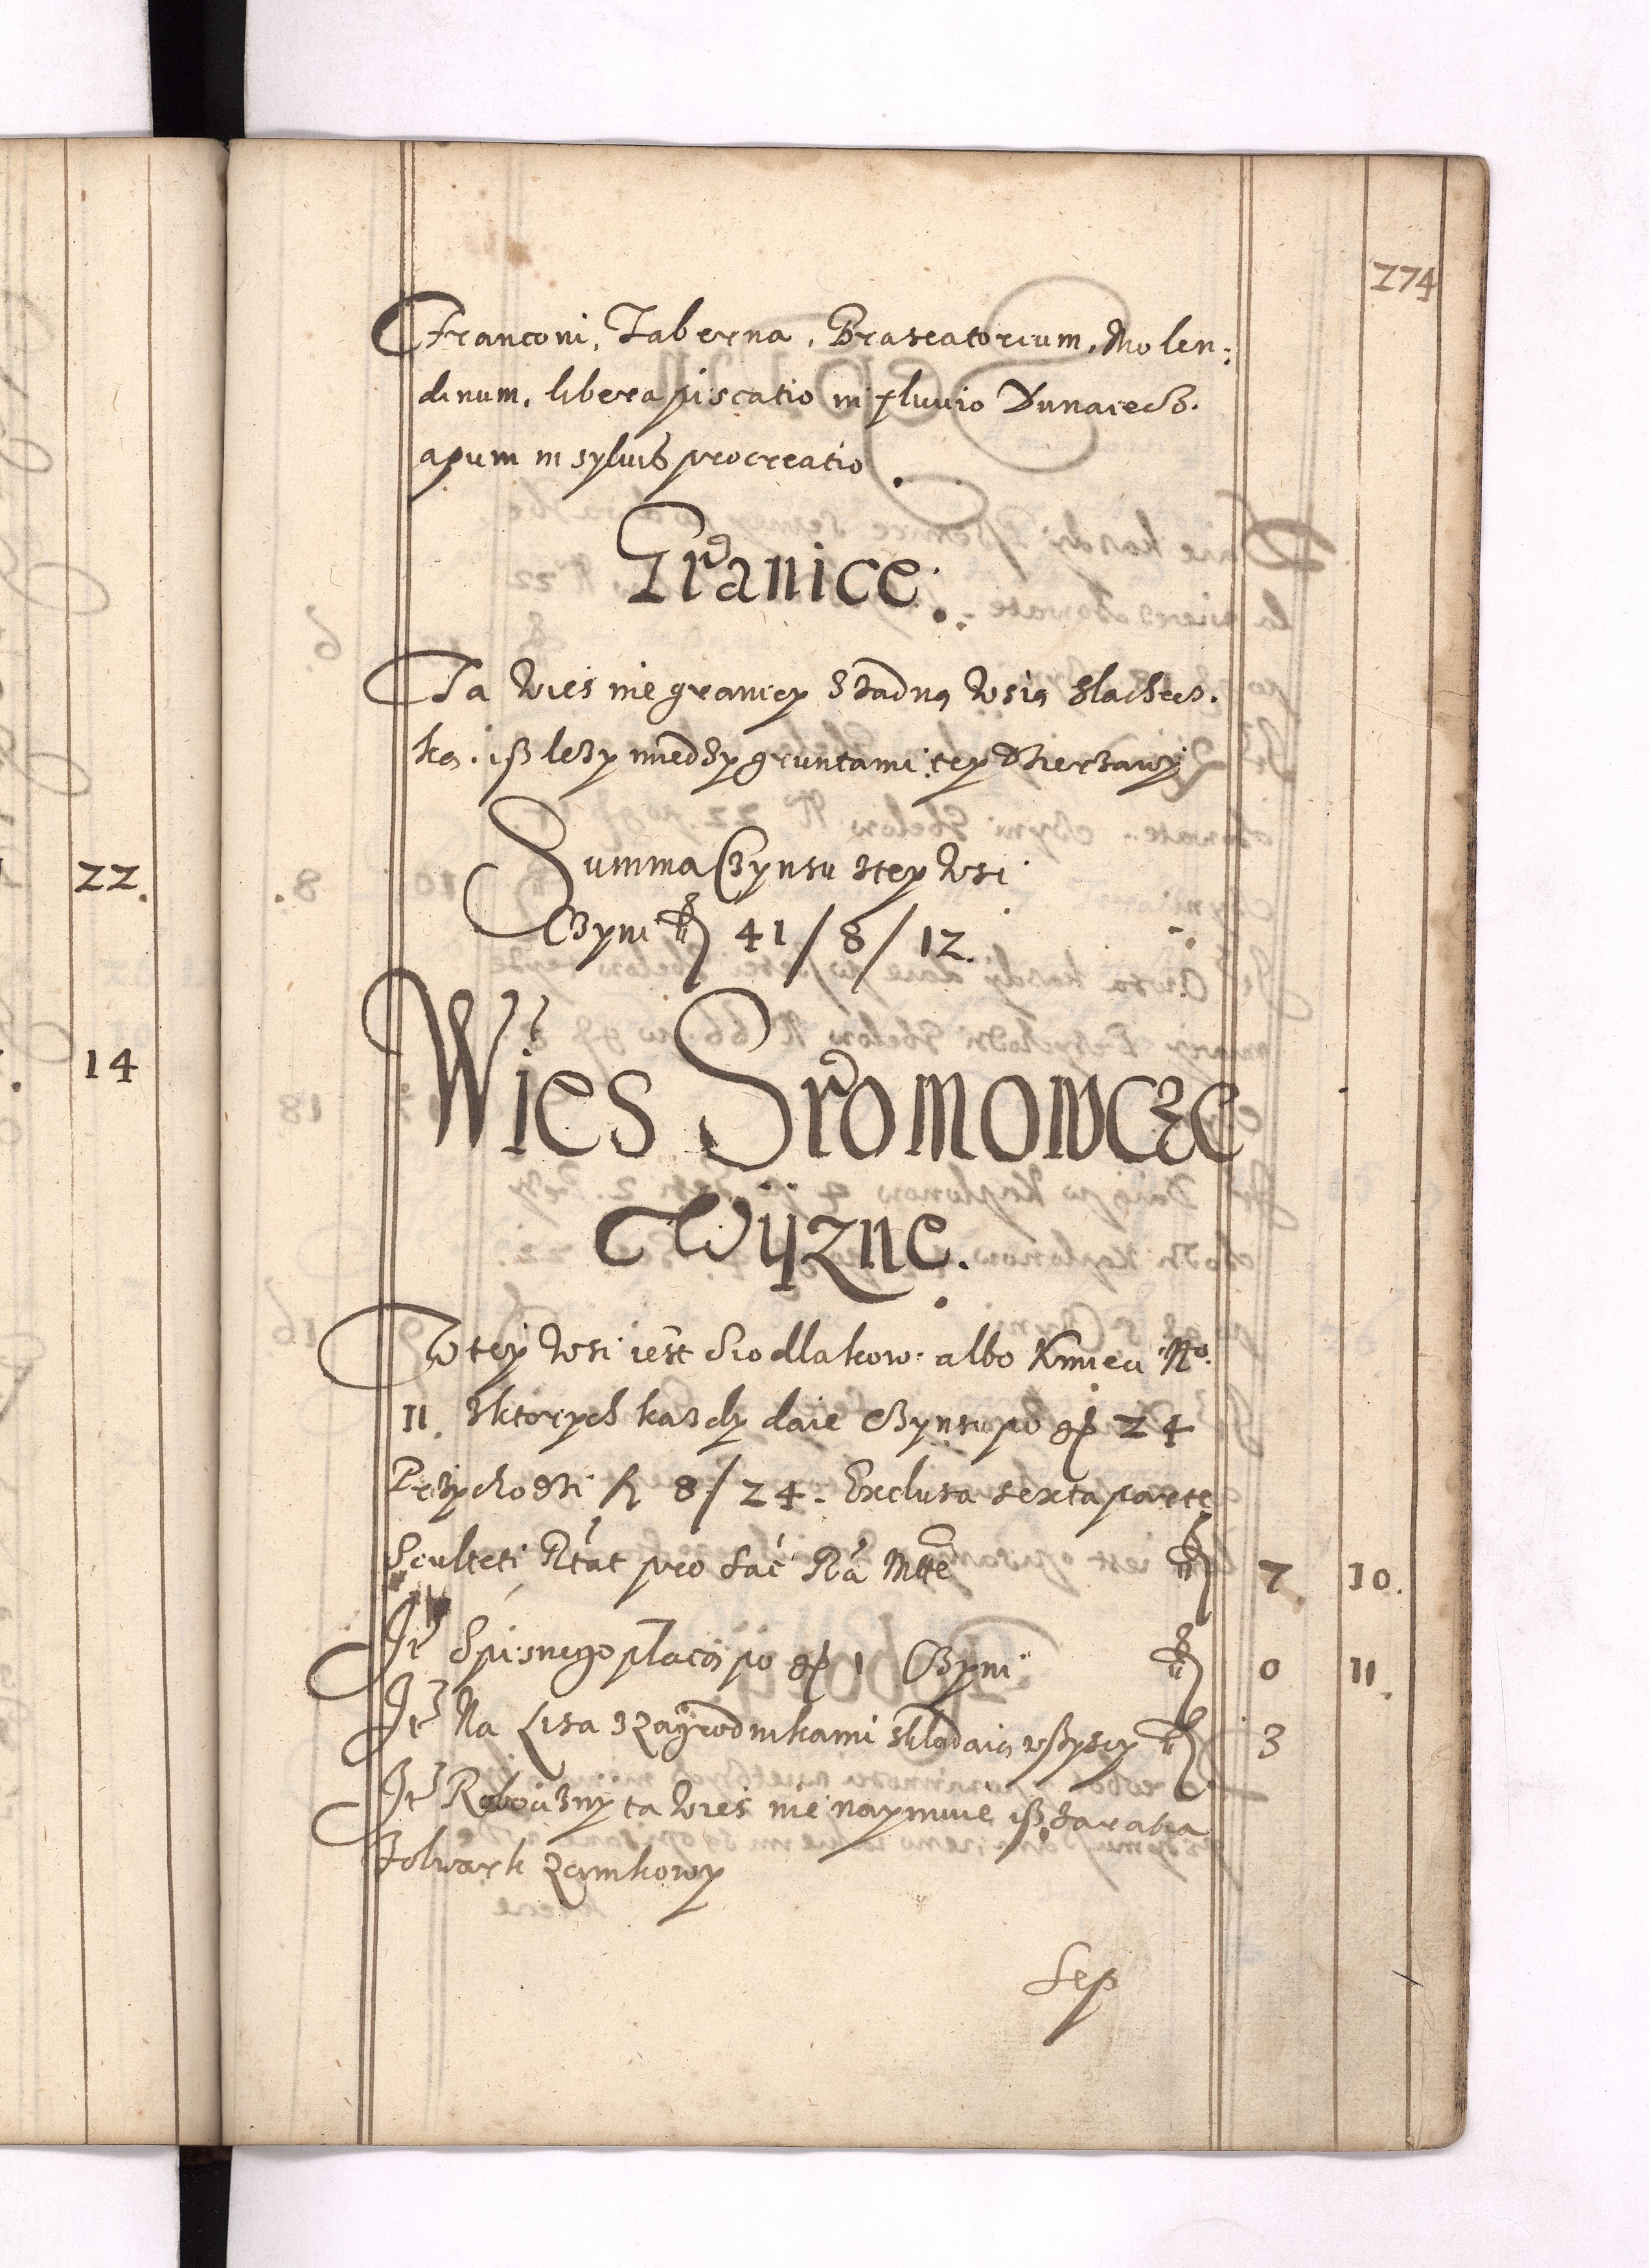 174
Franconi, Taberna, Braseatorium, Molen:
dinum, libera piscatio in fluvio Dunaiecz.
apum in sylvis procreatio.
Granice.
Ta wies nie graniczy z żadną wsią slachec.
ką. iß leży miedzy gruntami tey Dzierżawy
Summa Czynsu z tey wsi
Czyni fl 41/8/12.
Wies Sromowcze
Wyzne.
W tey wsi iest Siodlakow albo Kmieci No
11. z ktorych każdy daie Czynsu po gr 24
Przychodzi fl 8/24. Exclusa sexta parte
Sculteti
pro Sac Ra Mtte
fl 7 10.
It Spisnego płacą po gr 1 Czyni fl 0 11.
It Na Lisa z Zagrodnikami składaią wßyscy fl 3
It Robocizny ta wies nie naymuie iß zarabia
Folwark Zamkowy
Sep
22.
14